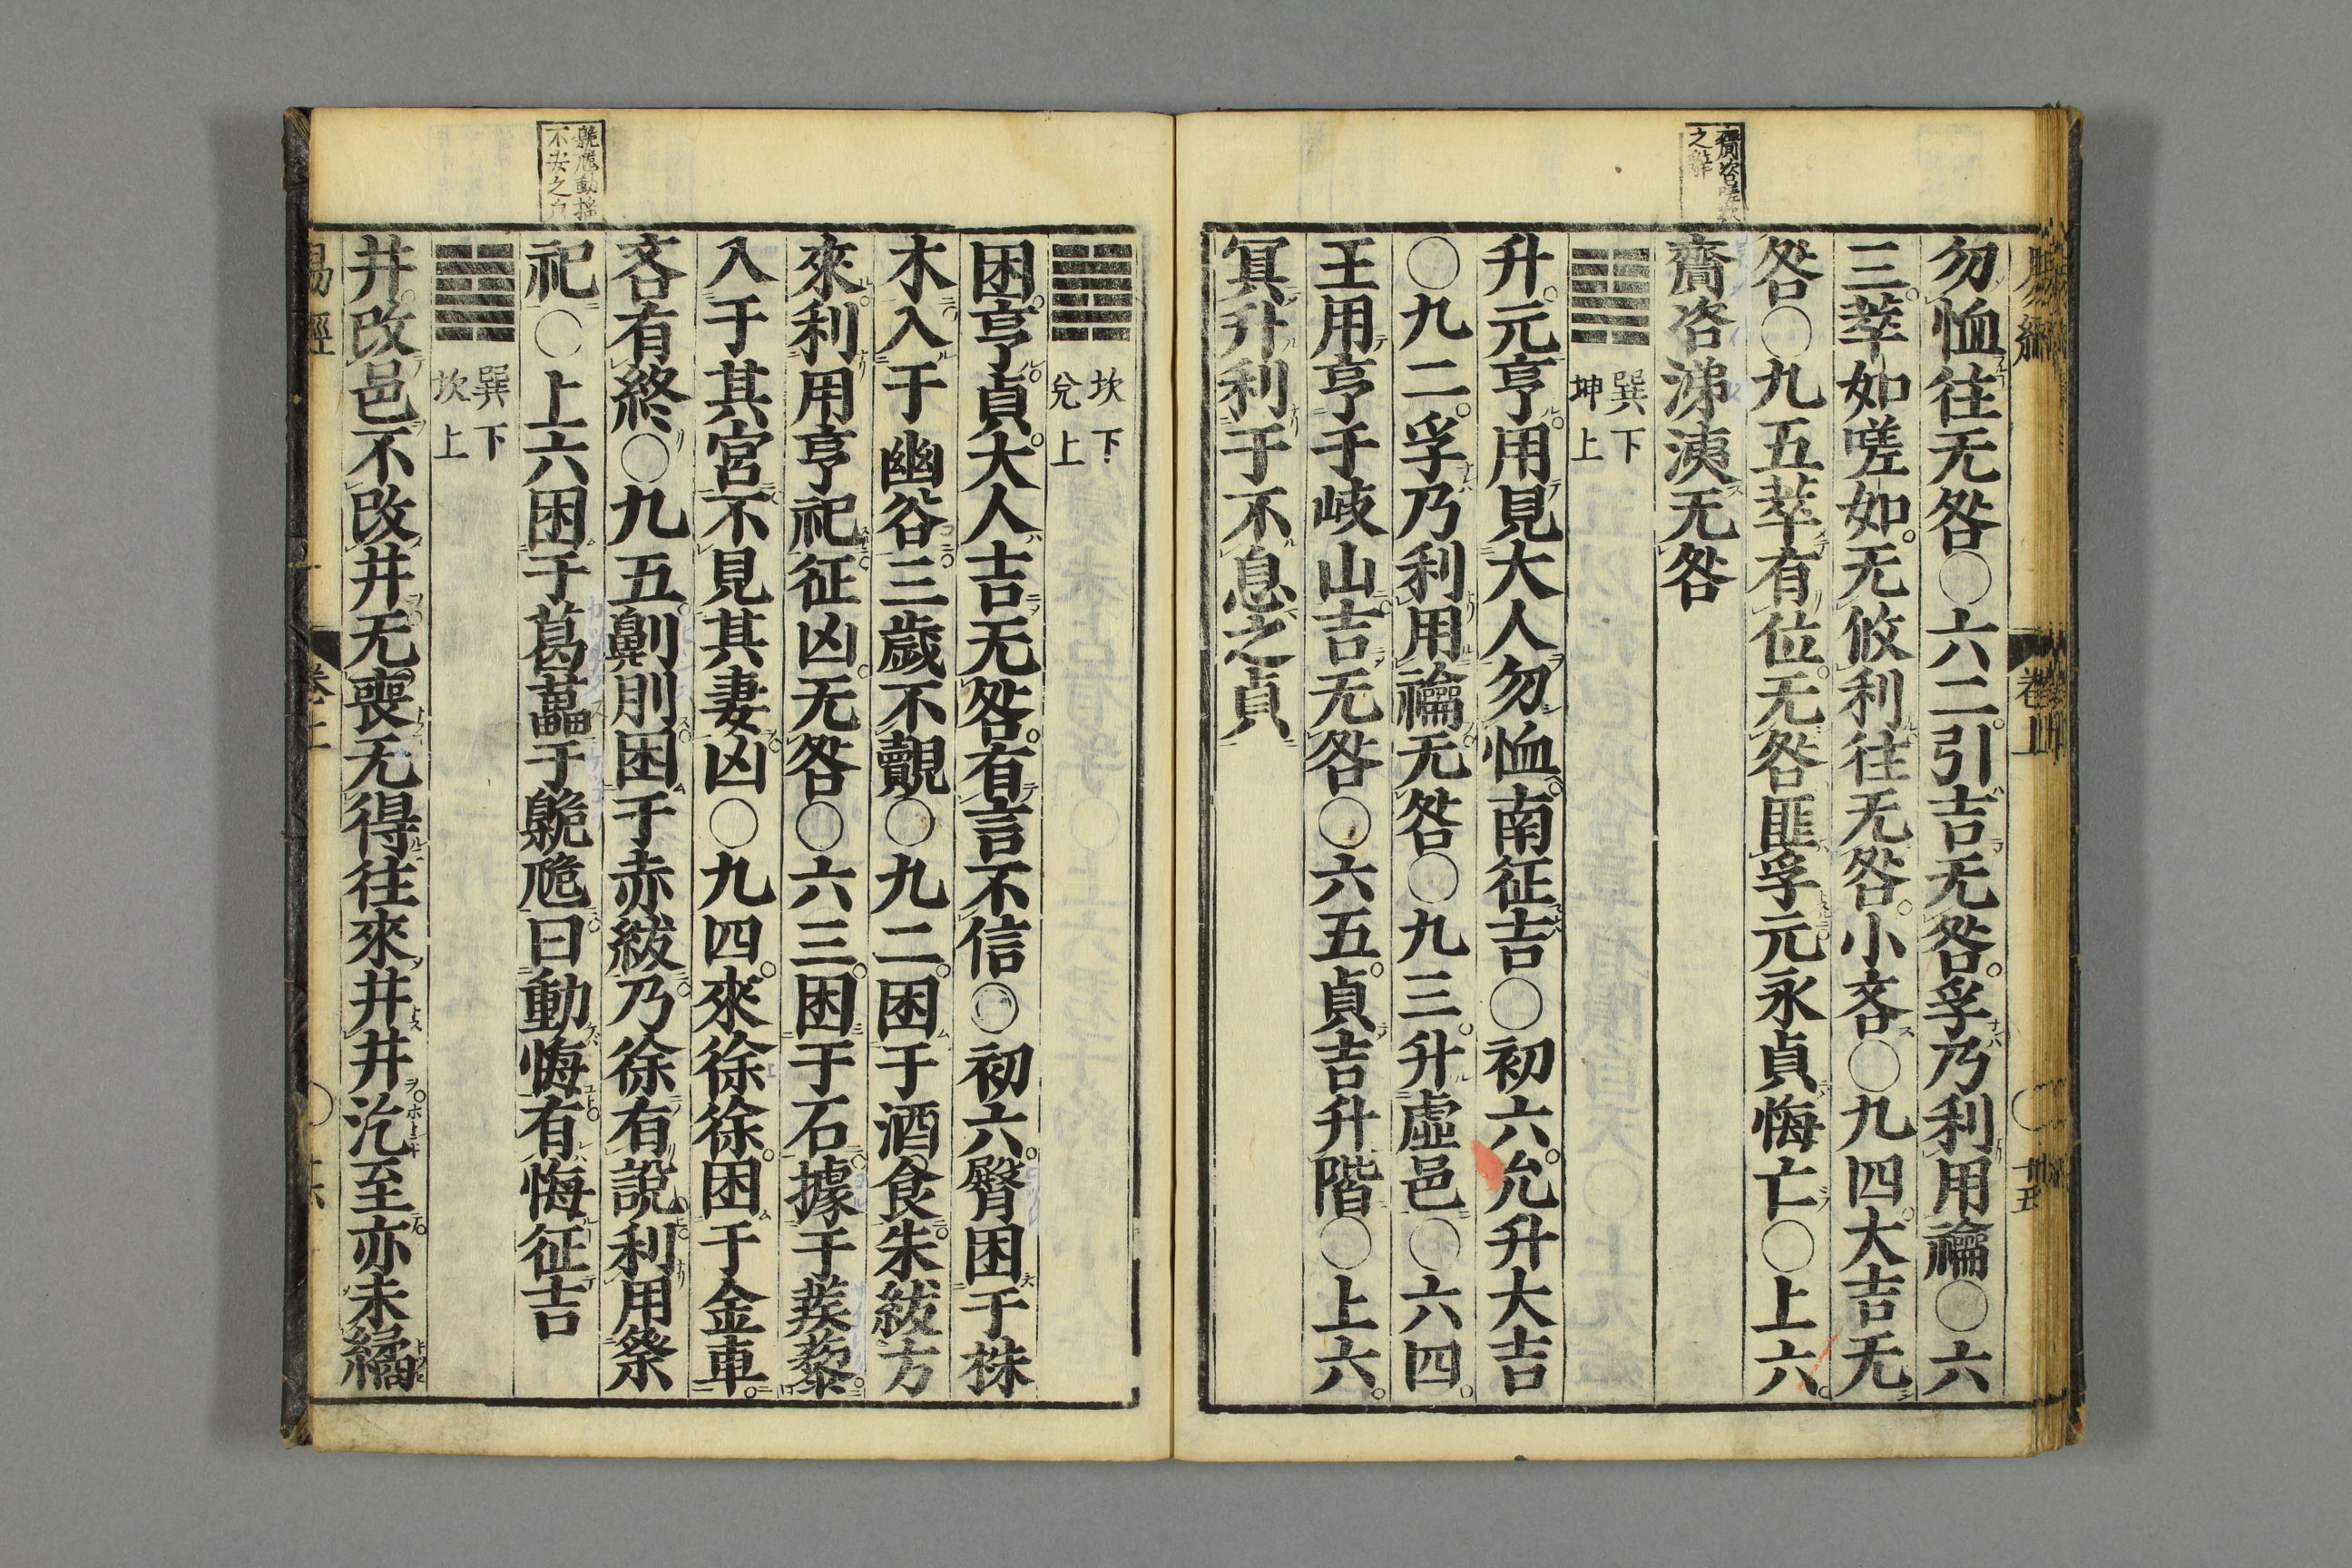 齎咨嗟歎
之辭
勿恤往无咎○六二引吉无咎孚乃利用禴○六
三萃如嗟如无攸利往无咎小吝○九四大吉无
咎○九五萃有位无咎匪孚元永貞悔亡○上六
齎咨涕洟无咎
巽下
坤上
升元亨用見大人勿恤南征吉○初六允升大吉
○九二孚乃利用禴无咎○九三升虛邑○六四
王用亨于岐山吉无咎○六五貞吉升階○上六
冥升利于不息之貞
坎下
兌上
困亨貞大人吉无咎有言不信○初六臀困于株
木入于幽谷三歲不覿○九二困于酒食朱紱方
來利用亨祀征凶无咎○六三困于石據于蒺藜
入于其宮不見其妻凶○九四來徐徐困于金車
吝有終○九五劓刖困于赤紱乃徐有說利用祭
臲卼動搖
不安之
祀○上六困于葛藟于臲卼曰動悔有悔征吉
巽下
坎上
井改邑不改井无喪无得往來井井汔至亦未繘
易經